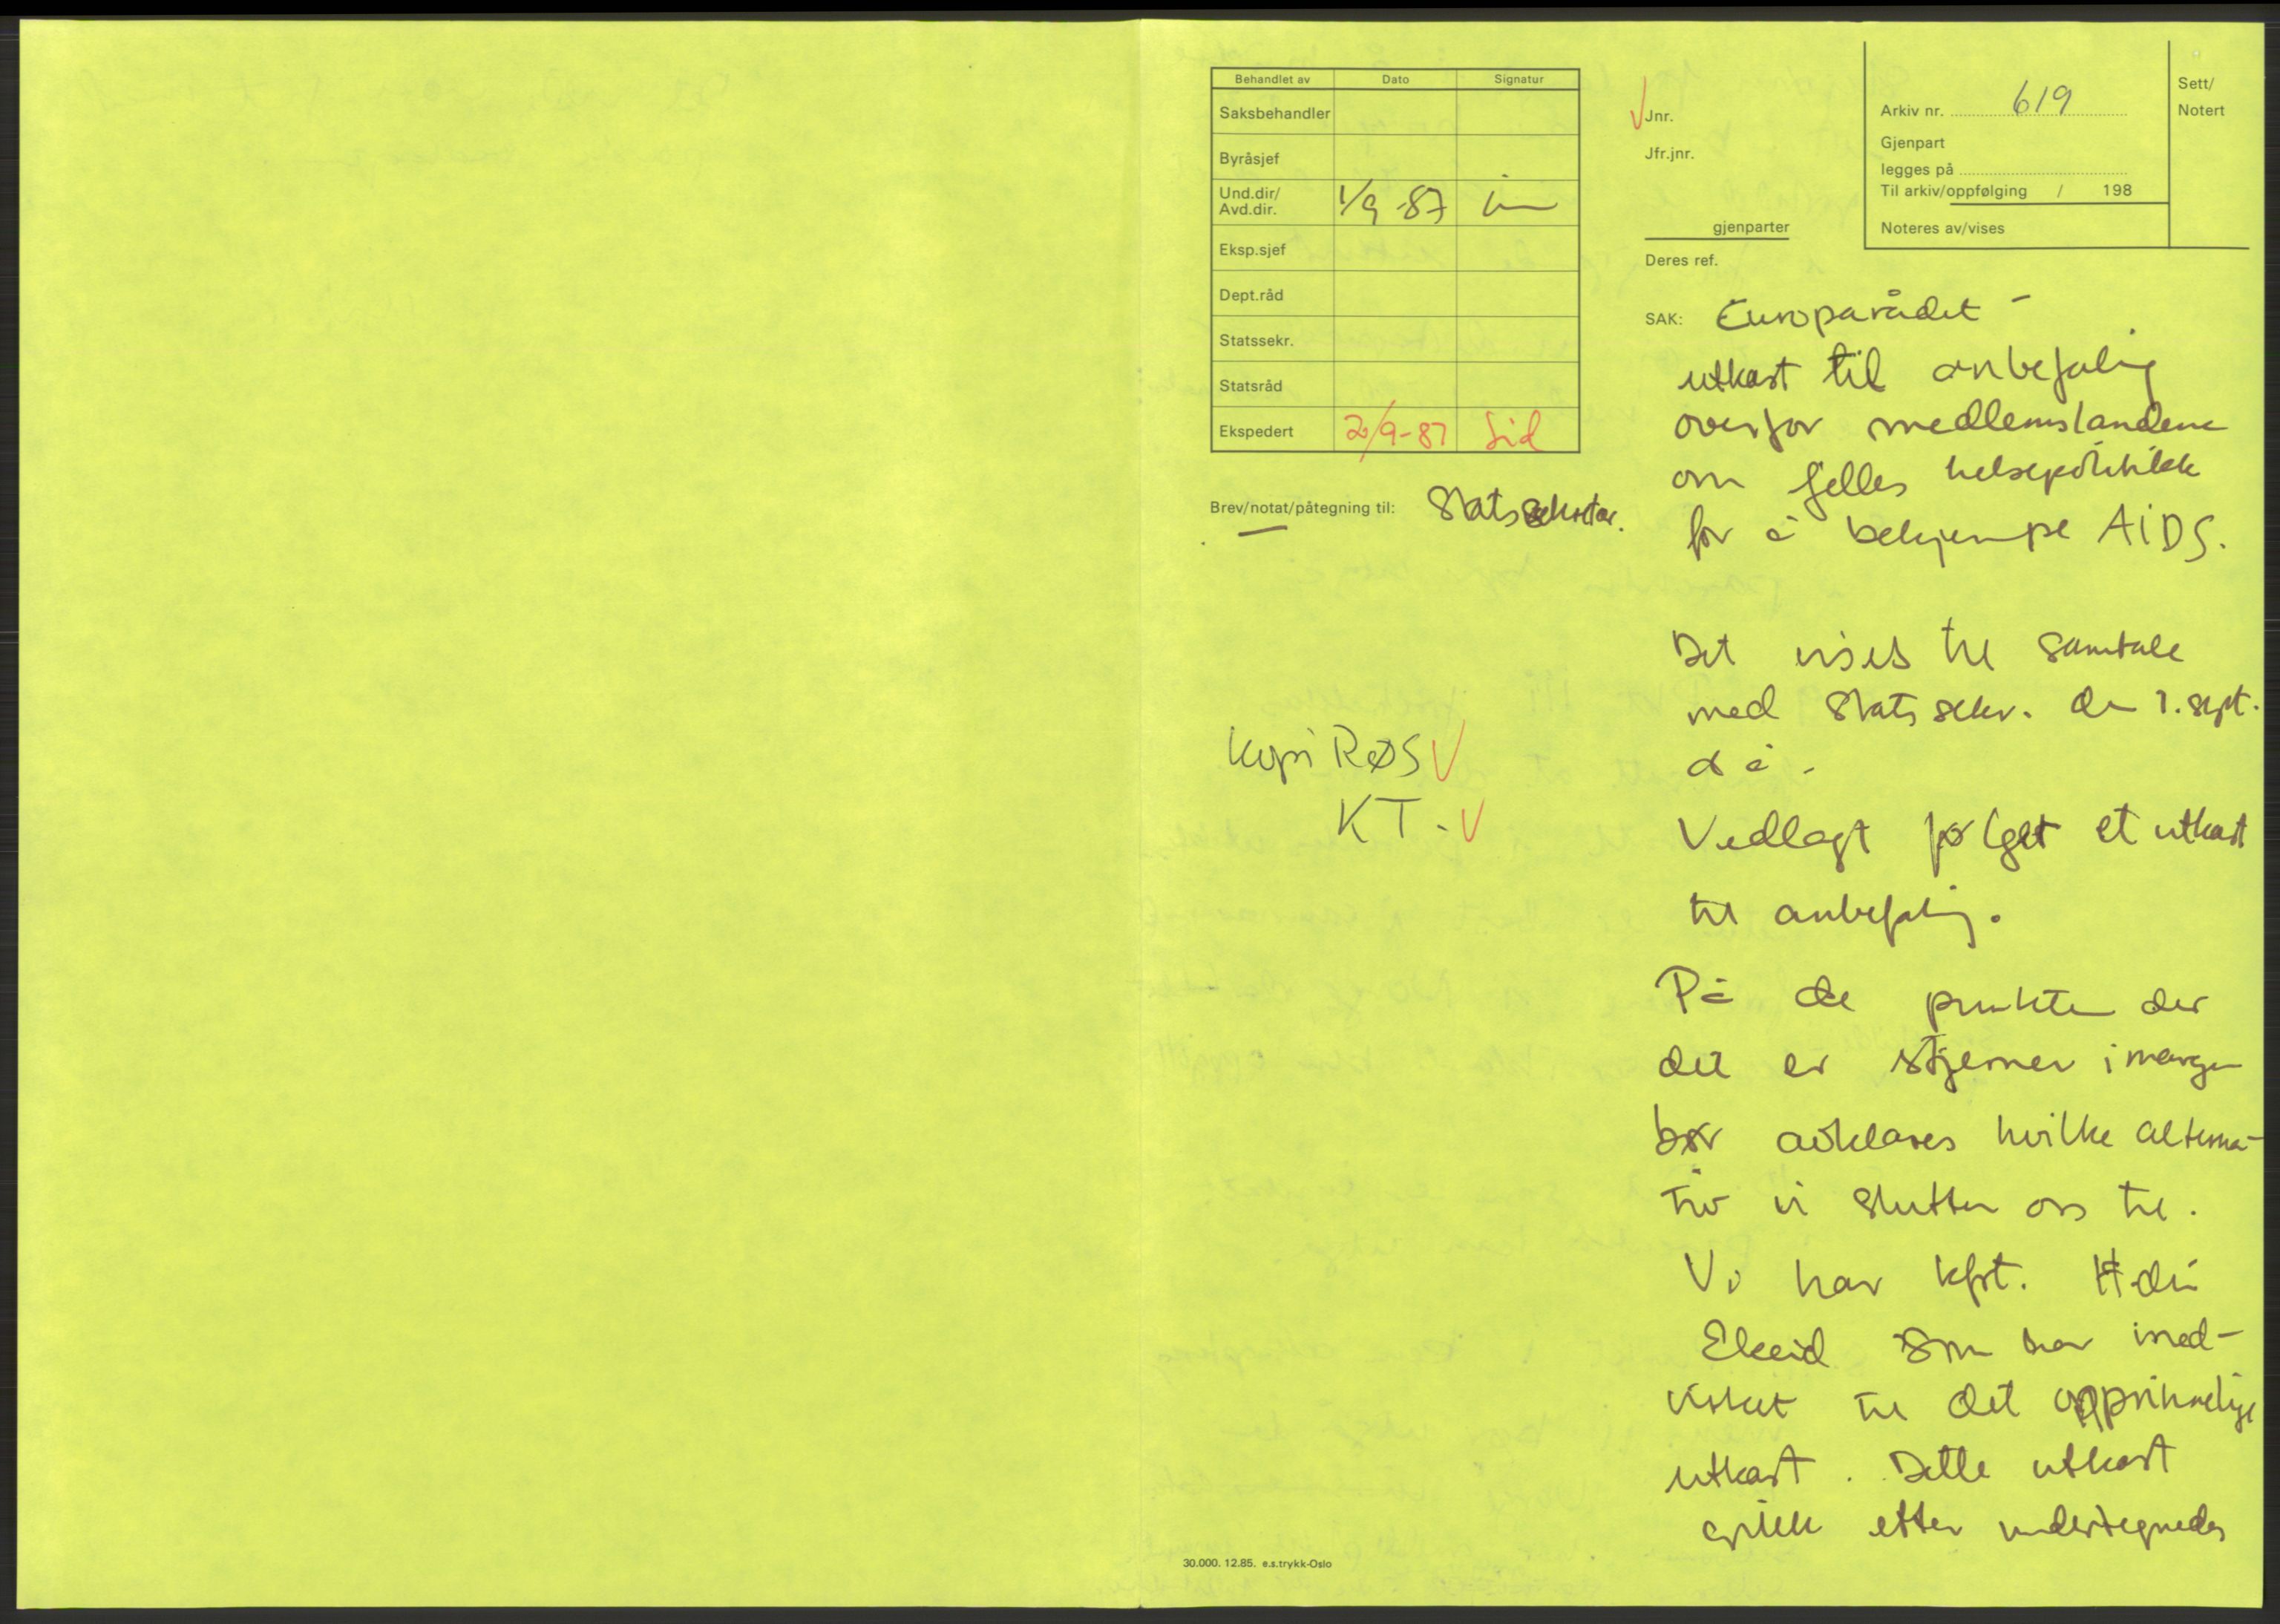 Behandlet av Dato Signatur
Saksbehandler
Byråsjef
Und.dir/
Avd.dir. 1/9-87
Eksp.sjef
Dept.råd
Statssekr.
Statsråd
Ekspedert 2/9-87 Sid
Brev/notat/påtegning til: Statssekretær.
Kopi RØS V
KT. V
30.000. 12.85. e.s.trykk-Oslo
Jnr.
Jfr.jnr.
gjenparter
Deres ref.
Arkiv nr. 619
Gjenpart
legges på
Til arkiv/oppfølging / 198
Noteres av/vises
Sett/
Notert
SAK: Europarådet -
utkast til anbefaling
overfor medlemslandene
om felles helsepolitikk
for å bekjempe AIDS.
Det vises til samtale
med statssekr. den 1. sept.
d å.
Vedlagt følget et utkast
til anbefaling.
På de punkter der
det er stjerner i margen
bør avklares hvilke alterna-
tiv vi slutter oss til.
Vi har kfrt. Hdir
Ekeid som har med-
virket til det opprinnelige
utkast. Dette utkast
gikk etter undertegnedes